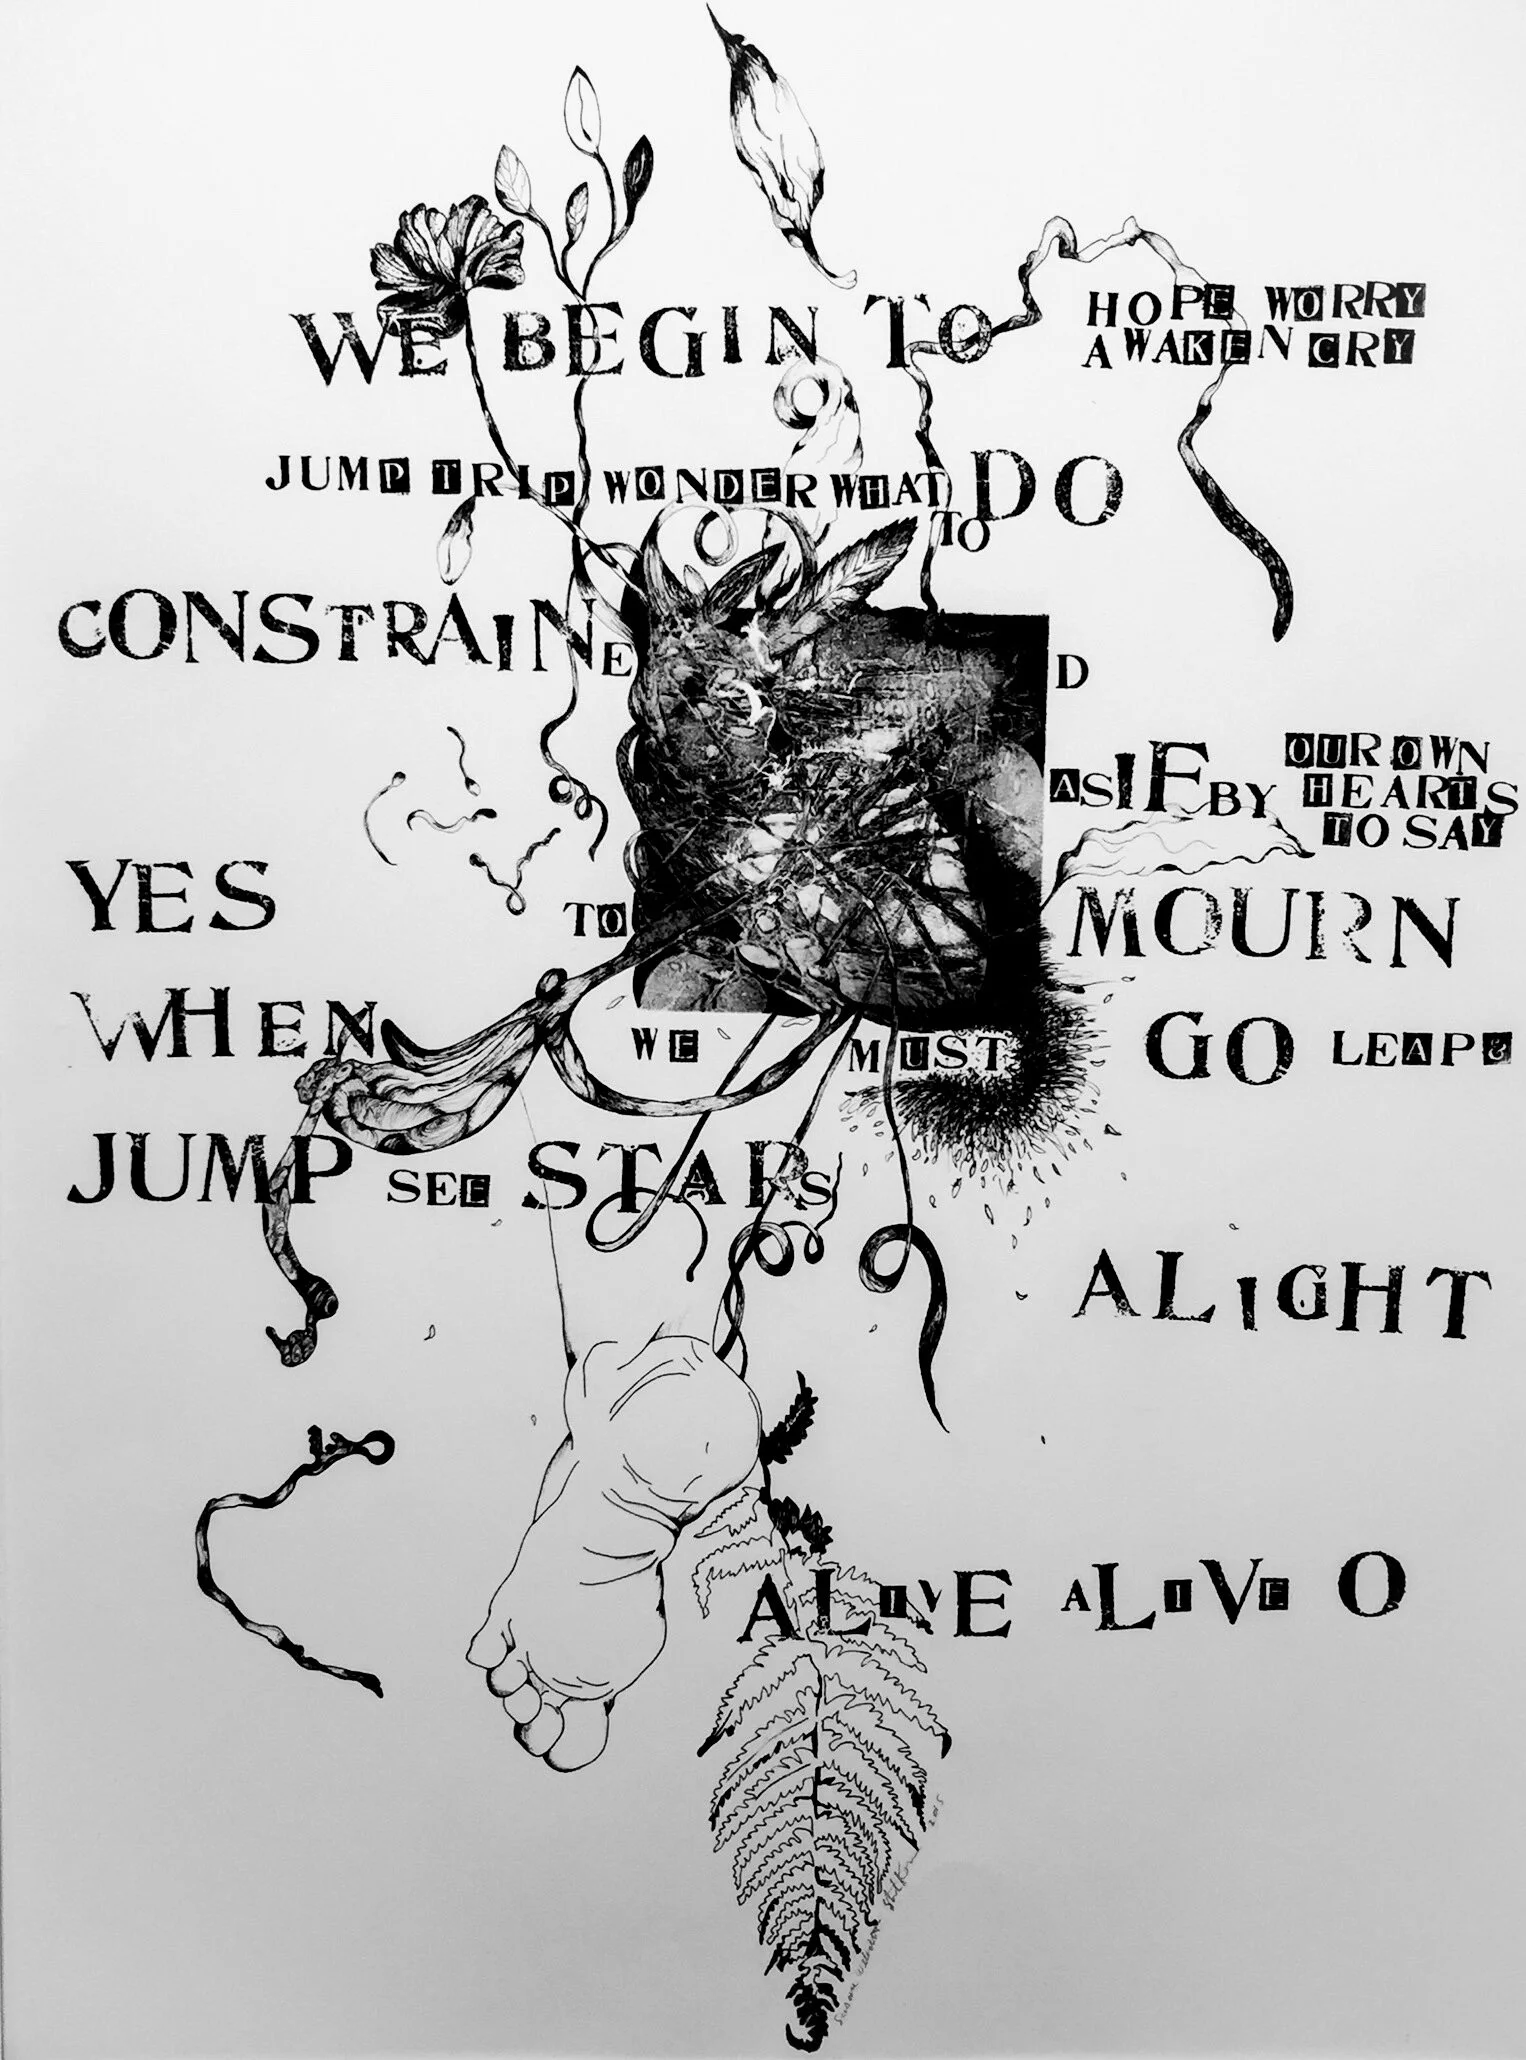 WE BEGIN TO HOPE WORRY
AWAKEN CRY
JUMP TRIP WONDER WHAT TO DO
CONSTRAINED
AS IF BY OUR OWN
HEARTS
TO SAY
YES TO MOURN
WHEN WE MUST GO LEAP &
JUMP SEE STARS
ALIGHT
ALIVE ALIVE O
2015